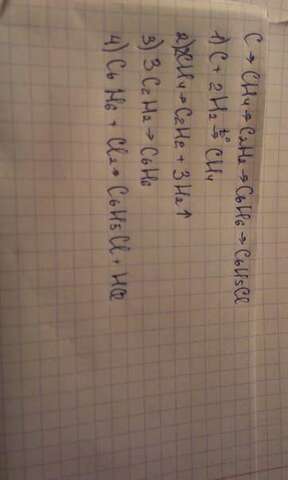 C → CH4 → C2H2 → C6H6 → C6H5Cl
1) C + 2H2 →t° CH4
2) 2CH4 → C2H2 + 3H2↑
3) 3C2H2 → C6H6
4) C6H6 + Cl2 → C6H5Cl + HCl